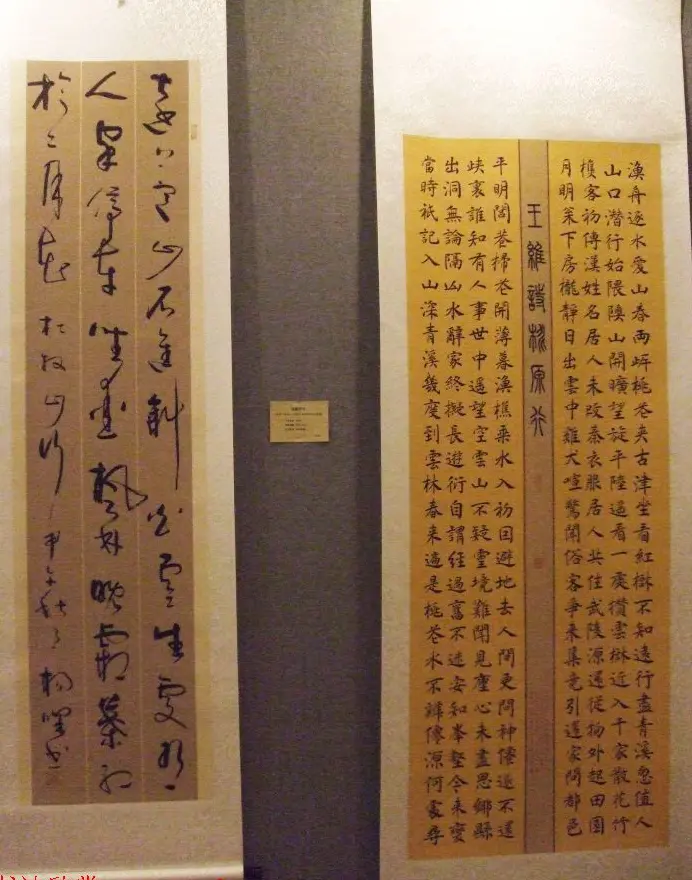 漁舟逐水愛山春兩岸桃花夾古津坐看紅樹不知遠行盡青溪忽值人
山口潛行始隈隩山開曠望旋平陸遙看一處攢雲樹近入千家散花竹
樵客初傳漢姓名居人未改秦衣服居人共住武陵源還從物外起田園
月明松下房櫳靜日出雲中雞犬喧驚聞俗客爭來集競引還家問都邑
王維詩桃原行
平明閭巷掃花開薄暮漁樵乘水入初因避地去人間更問神僊遂不還
峽裏誰知有人事世中遙望空雲山不疑靈境難聞見塵心未盡思鄉縣
出洞無論隔山水辭家終擬長遊衍自謂經過舊不迷安知峯壑今來變
當時祇記入山深青溪幾度到雲林春來遍是桃花水不辨僊源何處尋
遠上寒山石徑斜白雲生處有
人家停車坐愛楓林晚霜葉紅
於二月花杜牧山行甲午秋月楊書